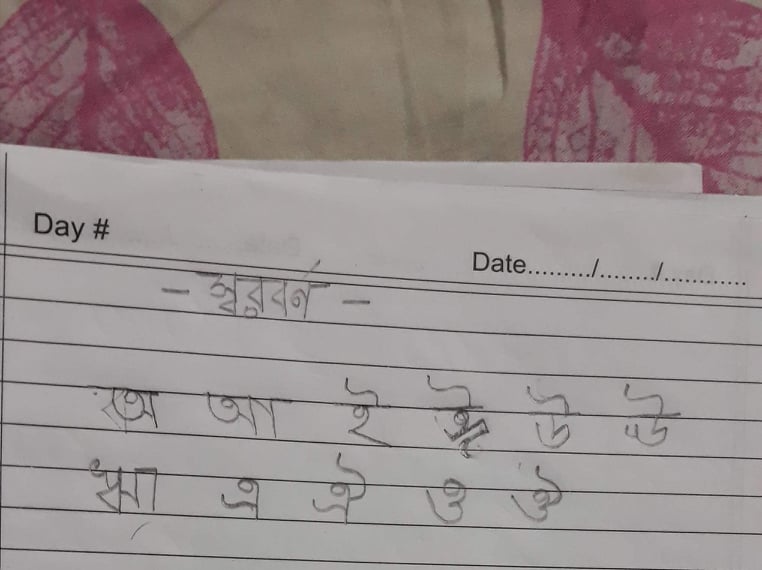 Day #
Date........./......../............
- স্বরবর্ণ -
অ আ ই ঈ উ ঊ
ঋ এ ঐ ও ঔ